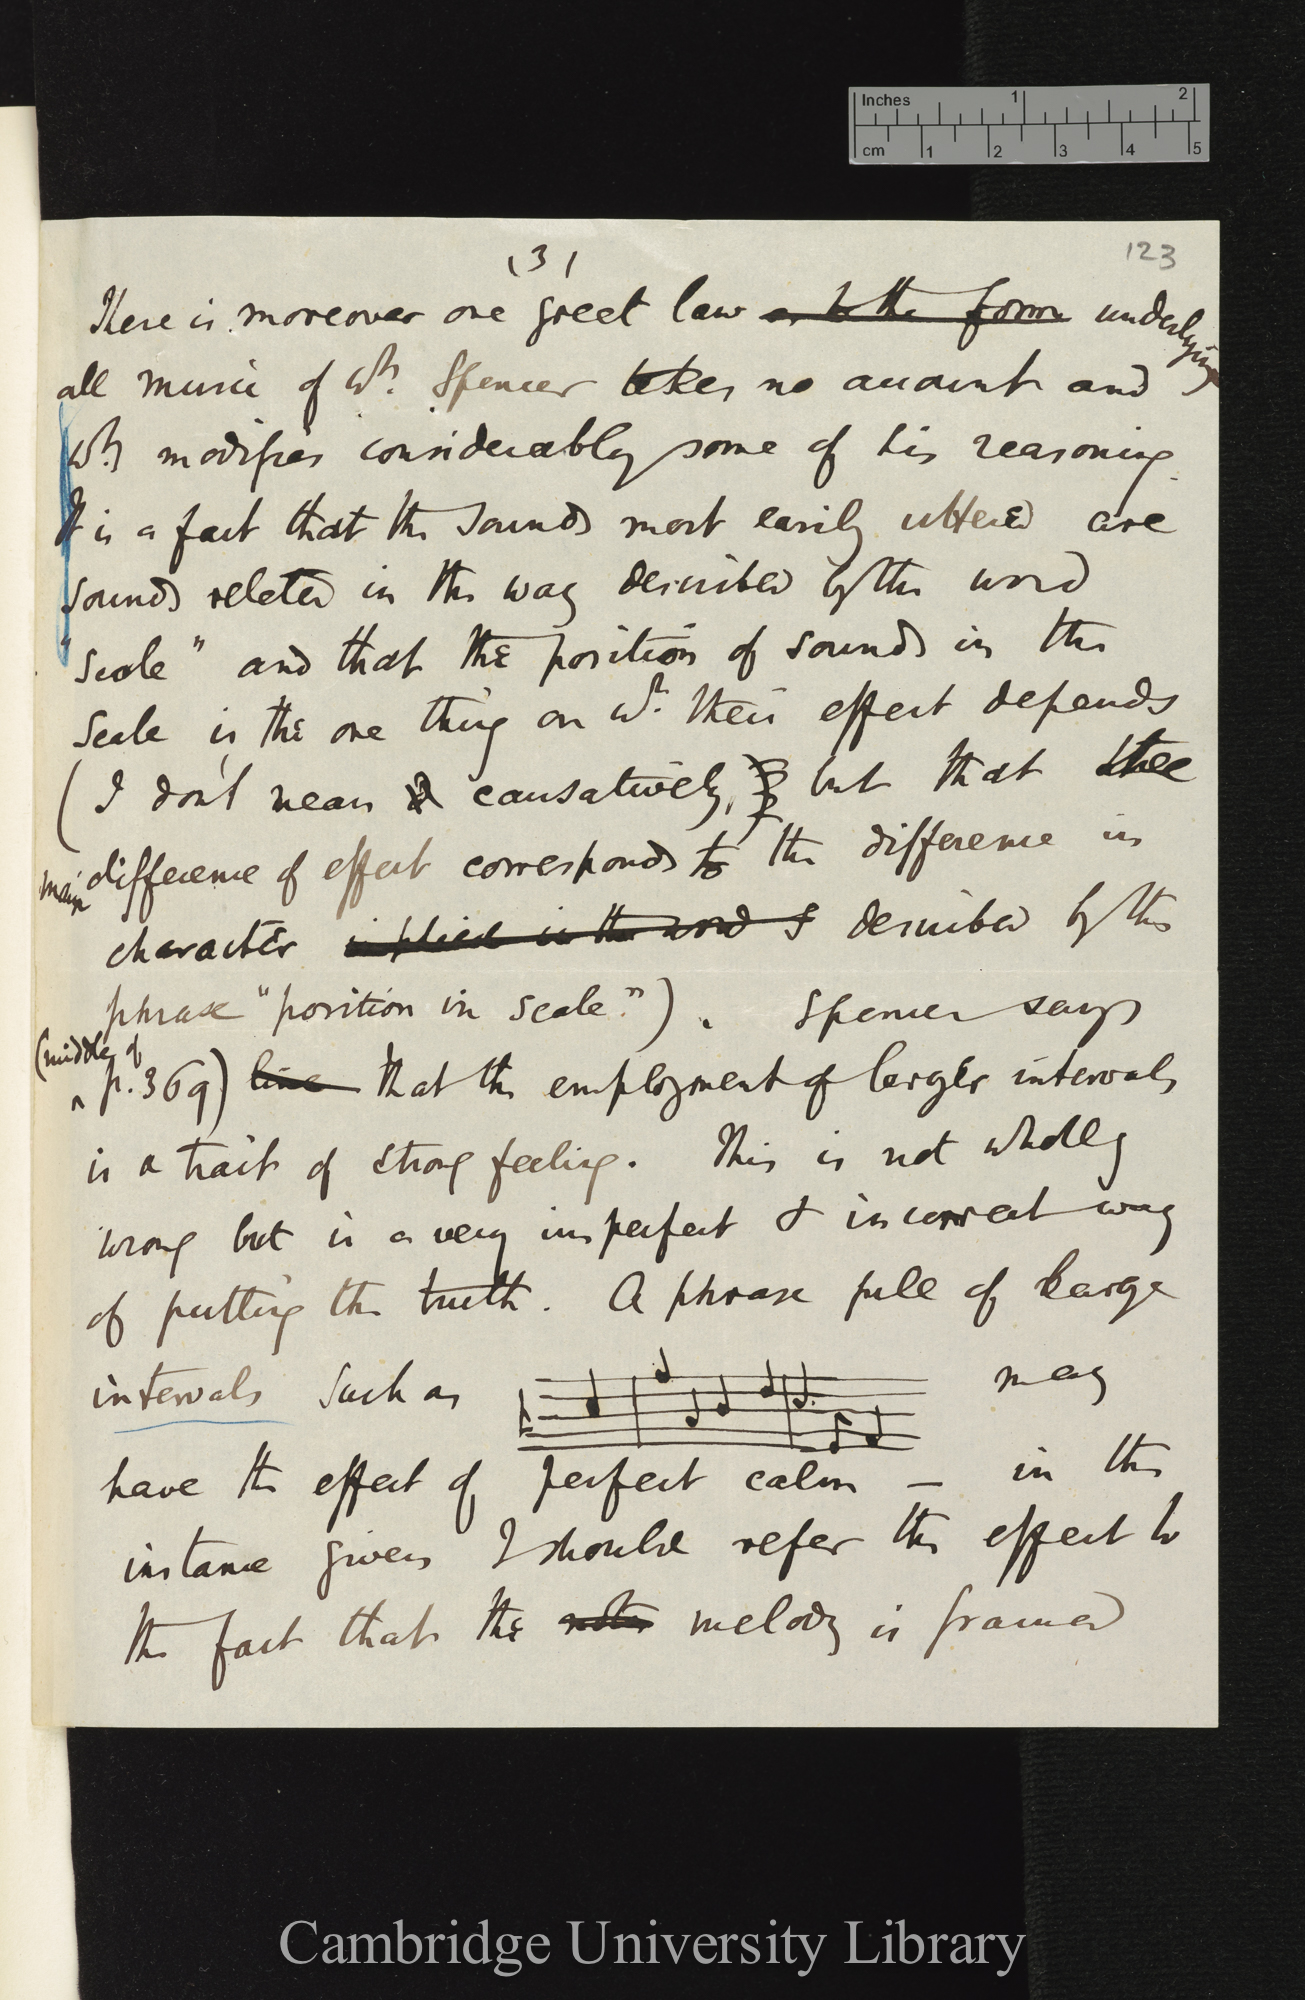 Inches 1 2
cm 1 2 3 4 5
(3)
123
There is moreover one great law as to the form underlying
all music of wh. Spencer takes no account and
wh modifies considerably some of his reasoning.
It is a fact that the sounds most easily uttered are
sounds related in the way described by the word
"scale" and that the position of sounds in the
scale is the one thing on wh. their effect depends
(I don't mean causatively, but that the
main difference of effect corresponds to the difference in
character implied in the word described by the
phrase "position in scale"). Spencer says
(middle of
p. 369) line that the employment of larger intervals
is a trait of strong feeling. This is not wholly
wrong but is a very imperfect & incorrect way
of putting the truth. A phrase full of large
intervals such as may
have the effect of perfect calm — in the
instance given I should refer the effect to
the fact that the notes melody is framed
Cambridge University Library